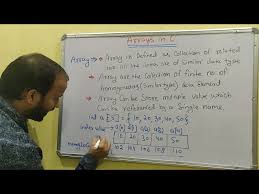 Arrays in C
Array → Array is Defined as Collection of related
items are of Similar data type
→ Array are the Collection of finite no. of
homogenious (Similar type) data Element
→ Array Can be Store multiple Value which
Can be referenced by a Single name.
int a [5] = { 10, 20, 30, 40, 50 }
index a[1] a[2] a[3] a[4]
10 20 30 40 50
102 104 106 108 110